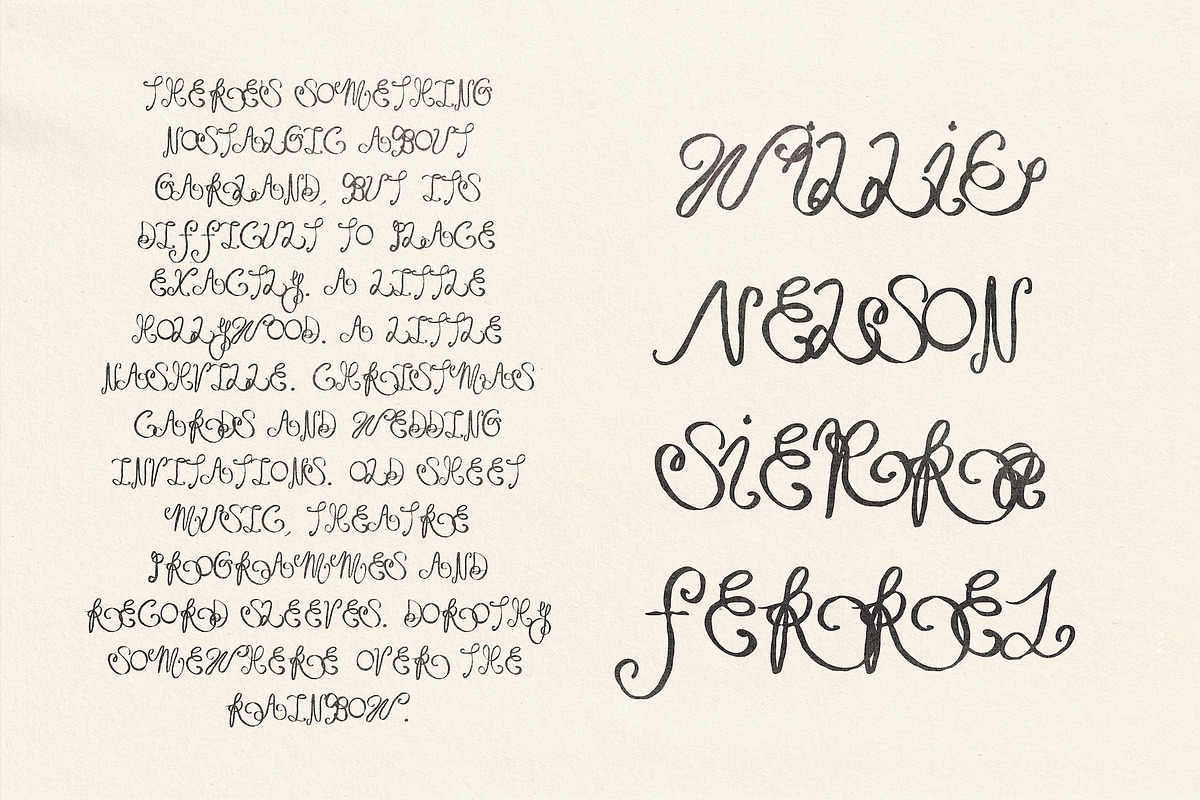 THERE'S SOMETHING
NOSTALGIC ABOUT
GARLAND, BUT ITS
DIFFICULT TO PLACE
EXACTLY. A LITTLE
HOLLYWOOD. A LITTLE
NASHVILLE. CHRISTMAS
CARDS AND WEDDING
INVITATIONS. OLD SHEET
MUSIC, THEATRE
PROGRAMMES AND
RECORD SLEEVES. DOROTHY
SOMEWHERE OVER THE
RAINBOW.
WiLLiE
NELSON
SiERRa
FERREL